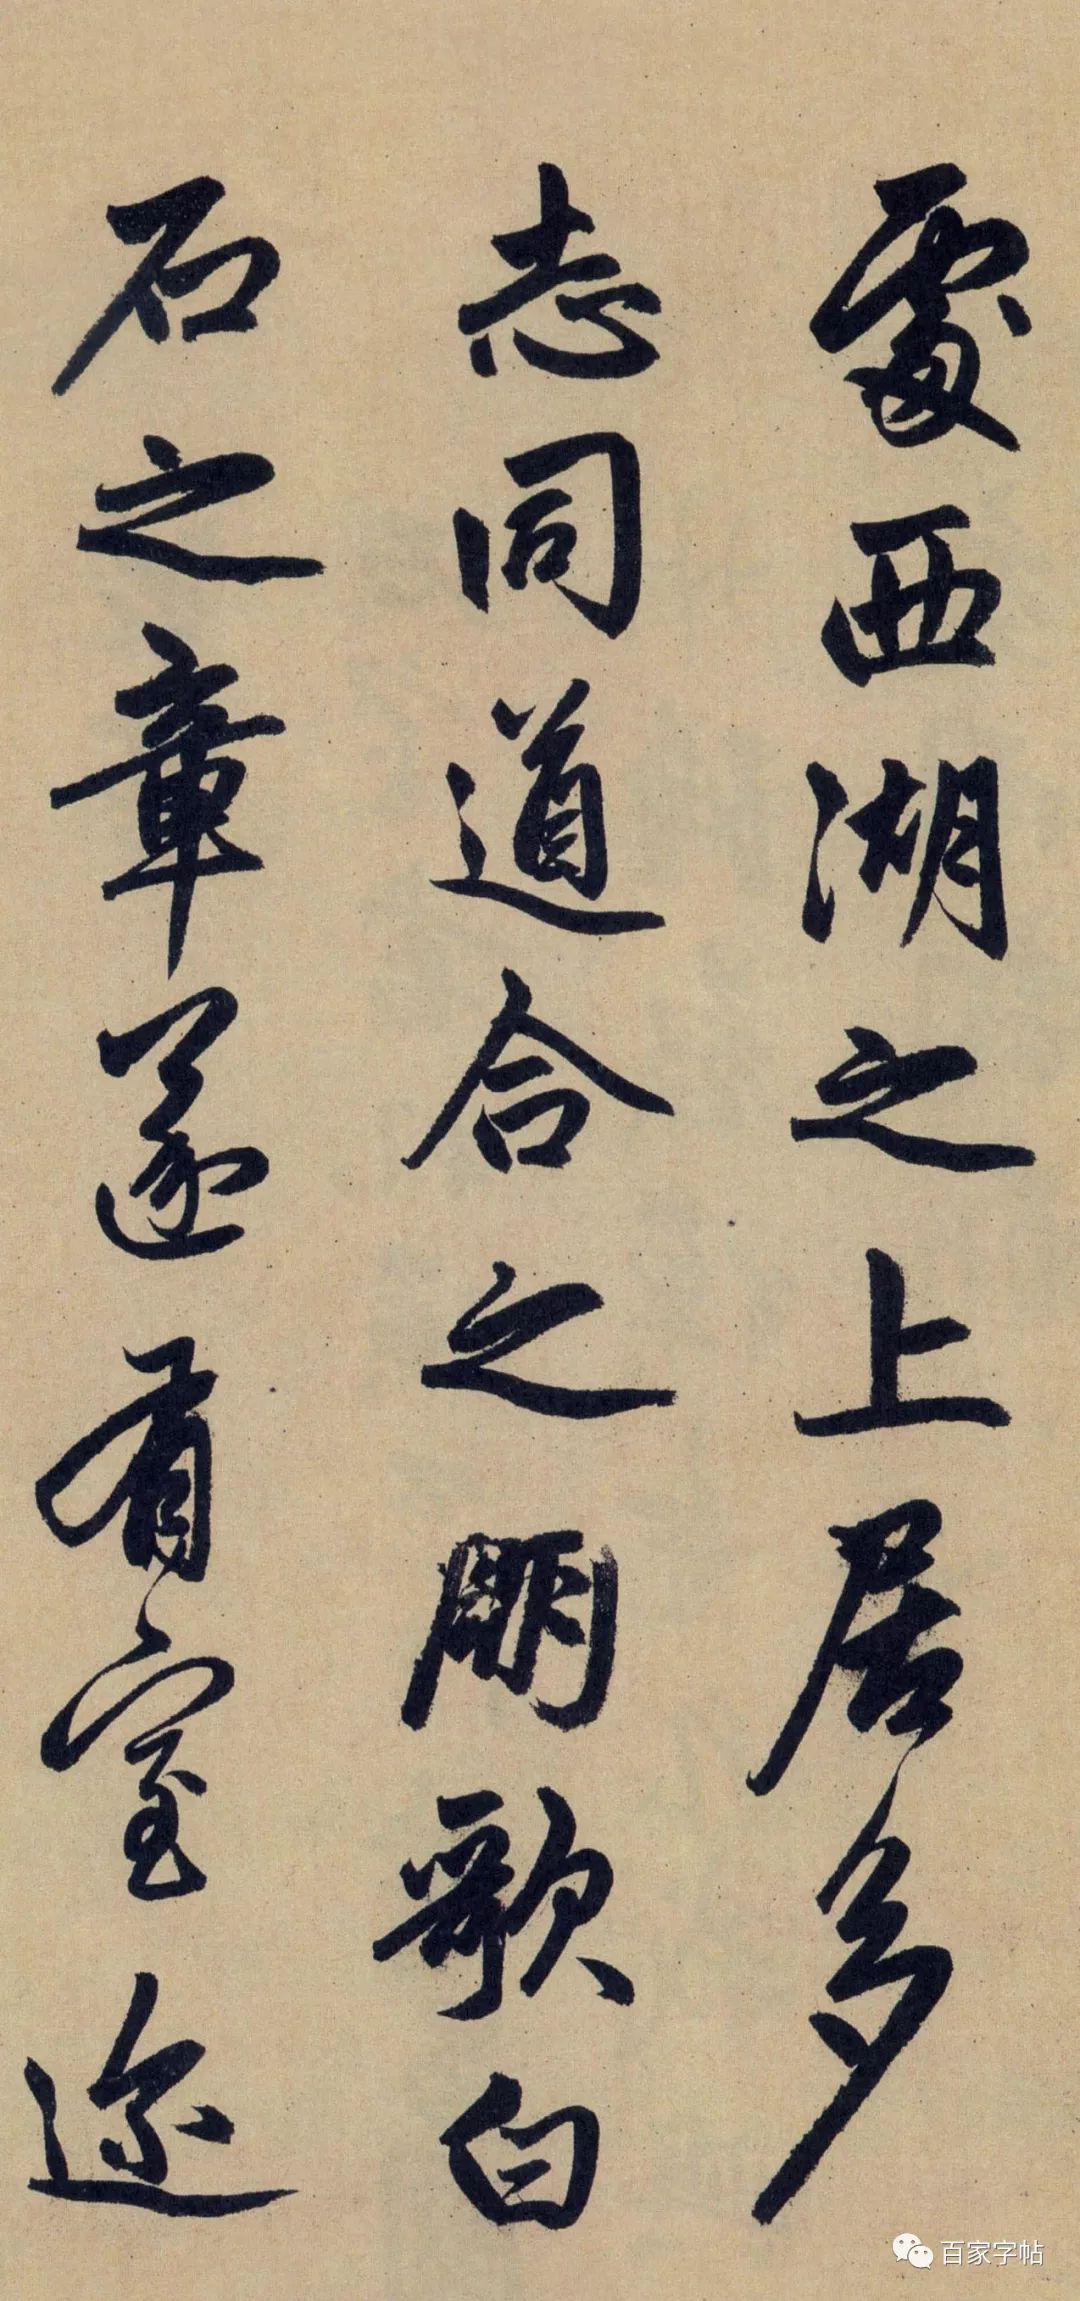 處西湖之上居多
志同道合之朋歌白
石之章遂有室迩
百家字帖